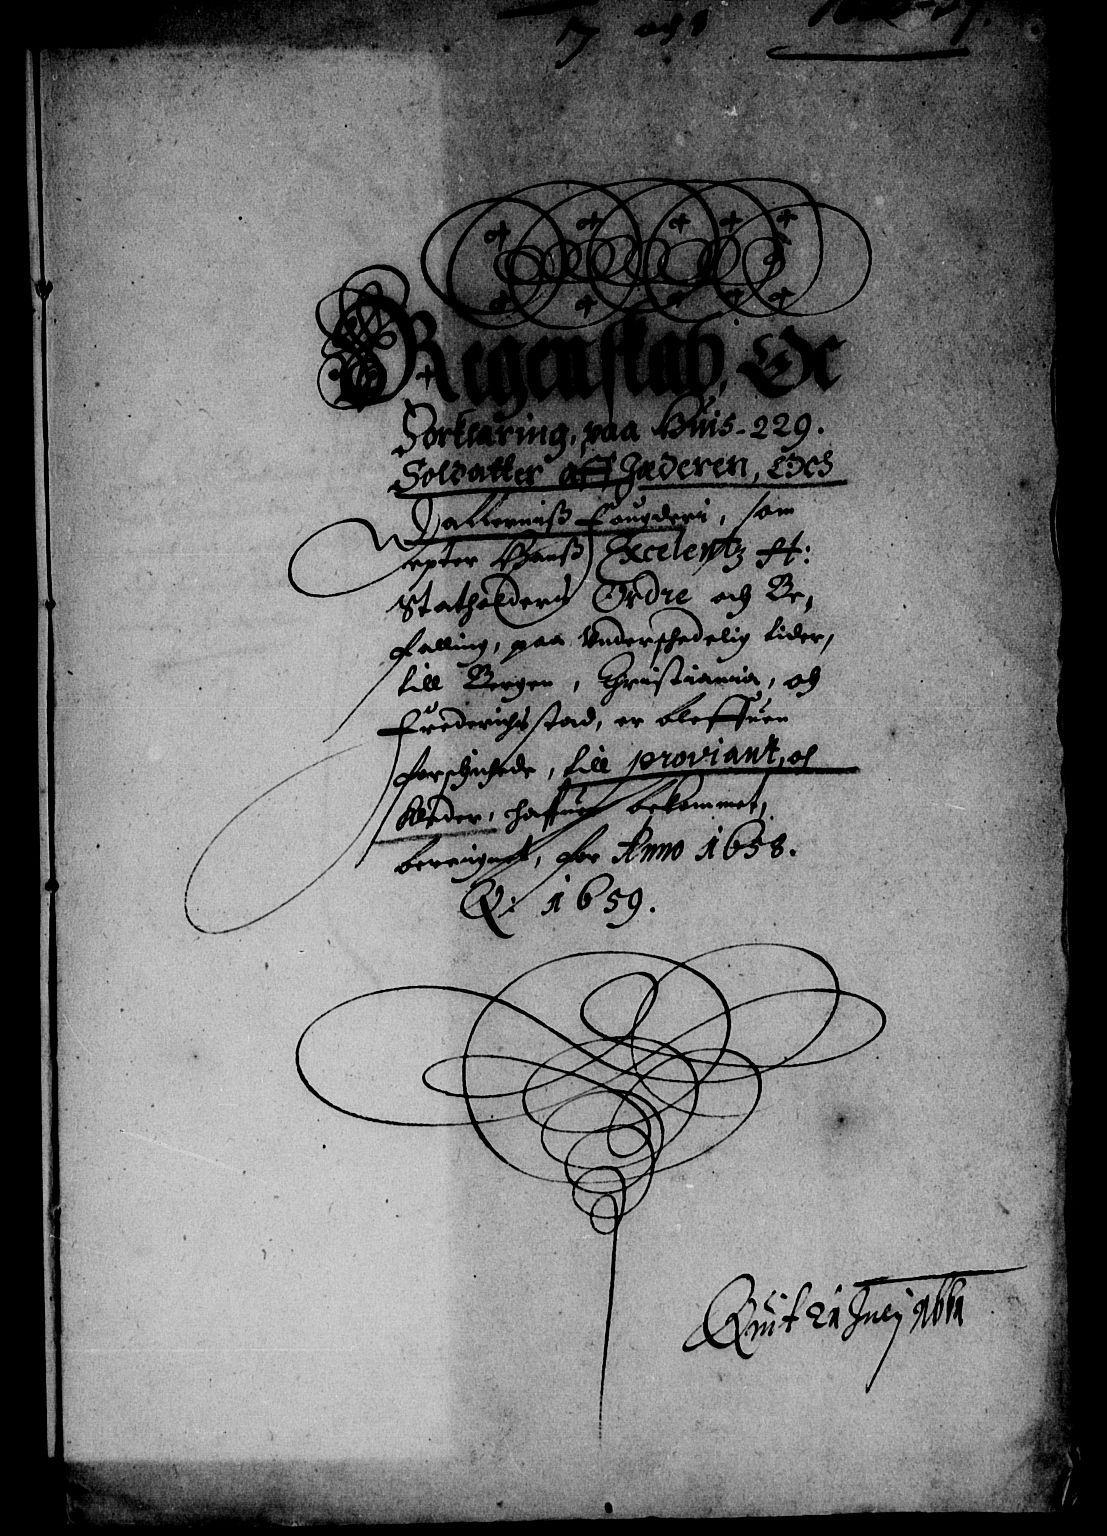 7 och 8
Regenskab, Oc
Forklaring, paa Huis - 229.
Soldatter aff Jæderen, Och
Dallerniß Fougderi, som
epter Hanß Excelentz H:
Statholders Ordre och Be,
falling, paa Underschedelig tider,
till Bergen, Christiania, och
Frederichsstad, er bleffuen
forschichede, till proviant, oc
Kleder, haffuer bekommet,
beregnet, for Anno 1658.
& 1659.
Quit 21 Julij 1661